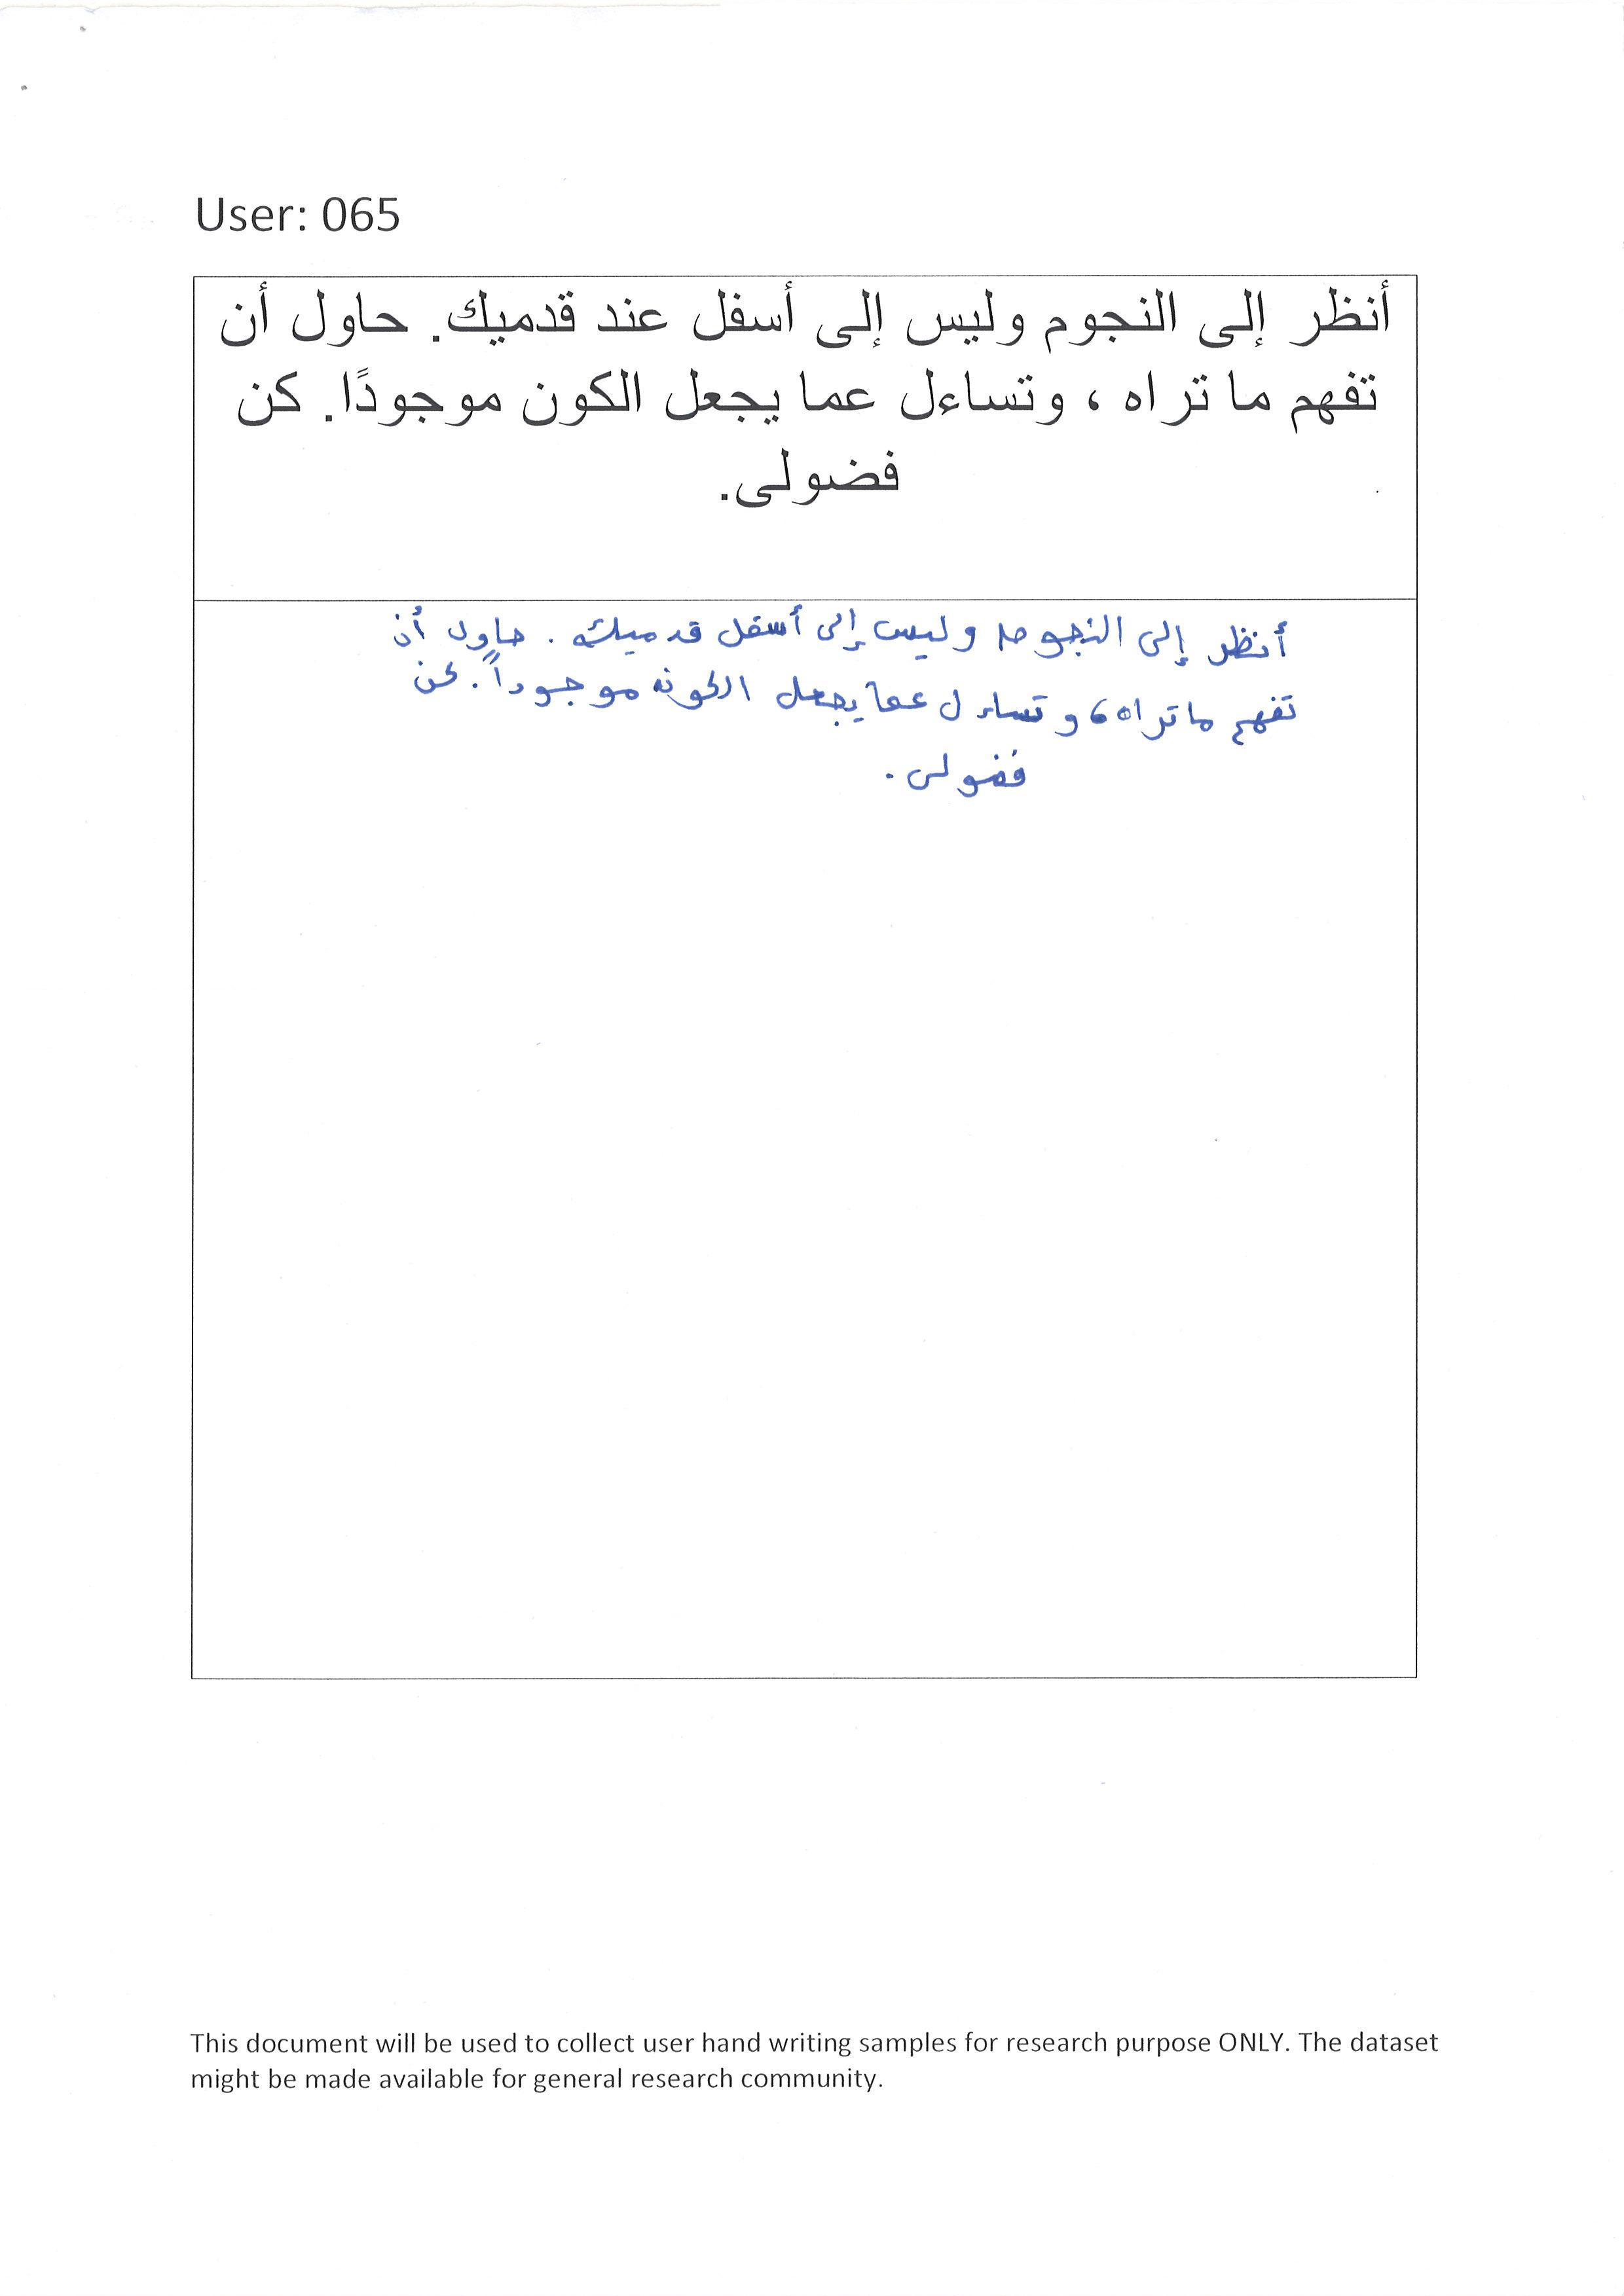 User: 065
أنظر إلى النجوم وليس إلى أسفل عند قدميك. حاول أن
تفهم ما تراه ، وتساءل عما يجعل الكون موجودًا. كن
فضولى.
أنظر إلى النجوم وليس إلى أسفل قدميك . حاول أن
تفهم ما تراه، وتساءل عما يجعل الكون موجوداً. كن
فضولى .
This document will be used to collect user hand writing samples for research purpose ONLY. The dataset
might be made available for general research community.